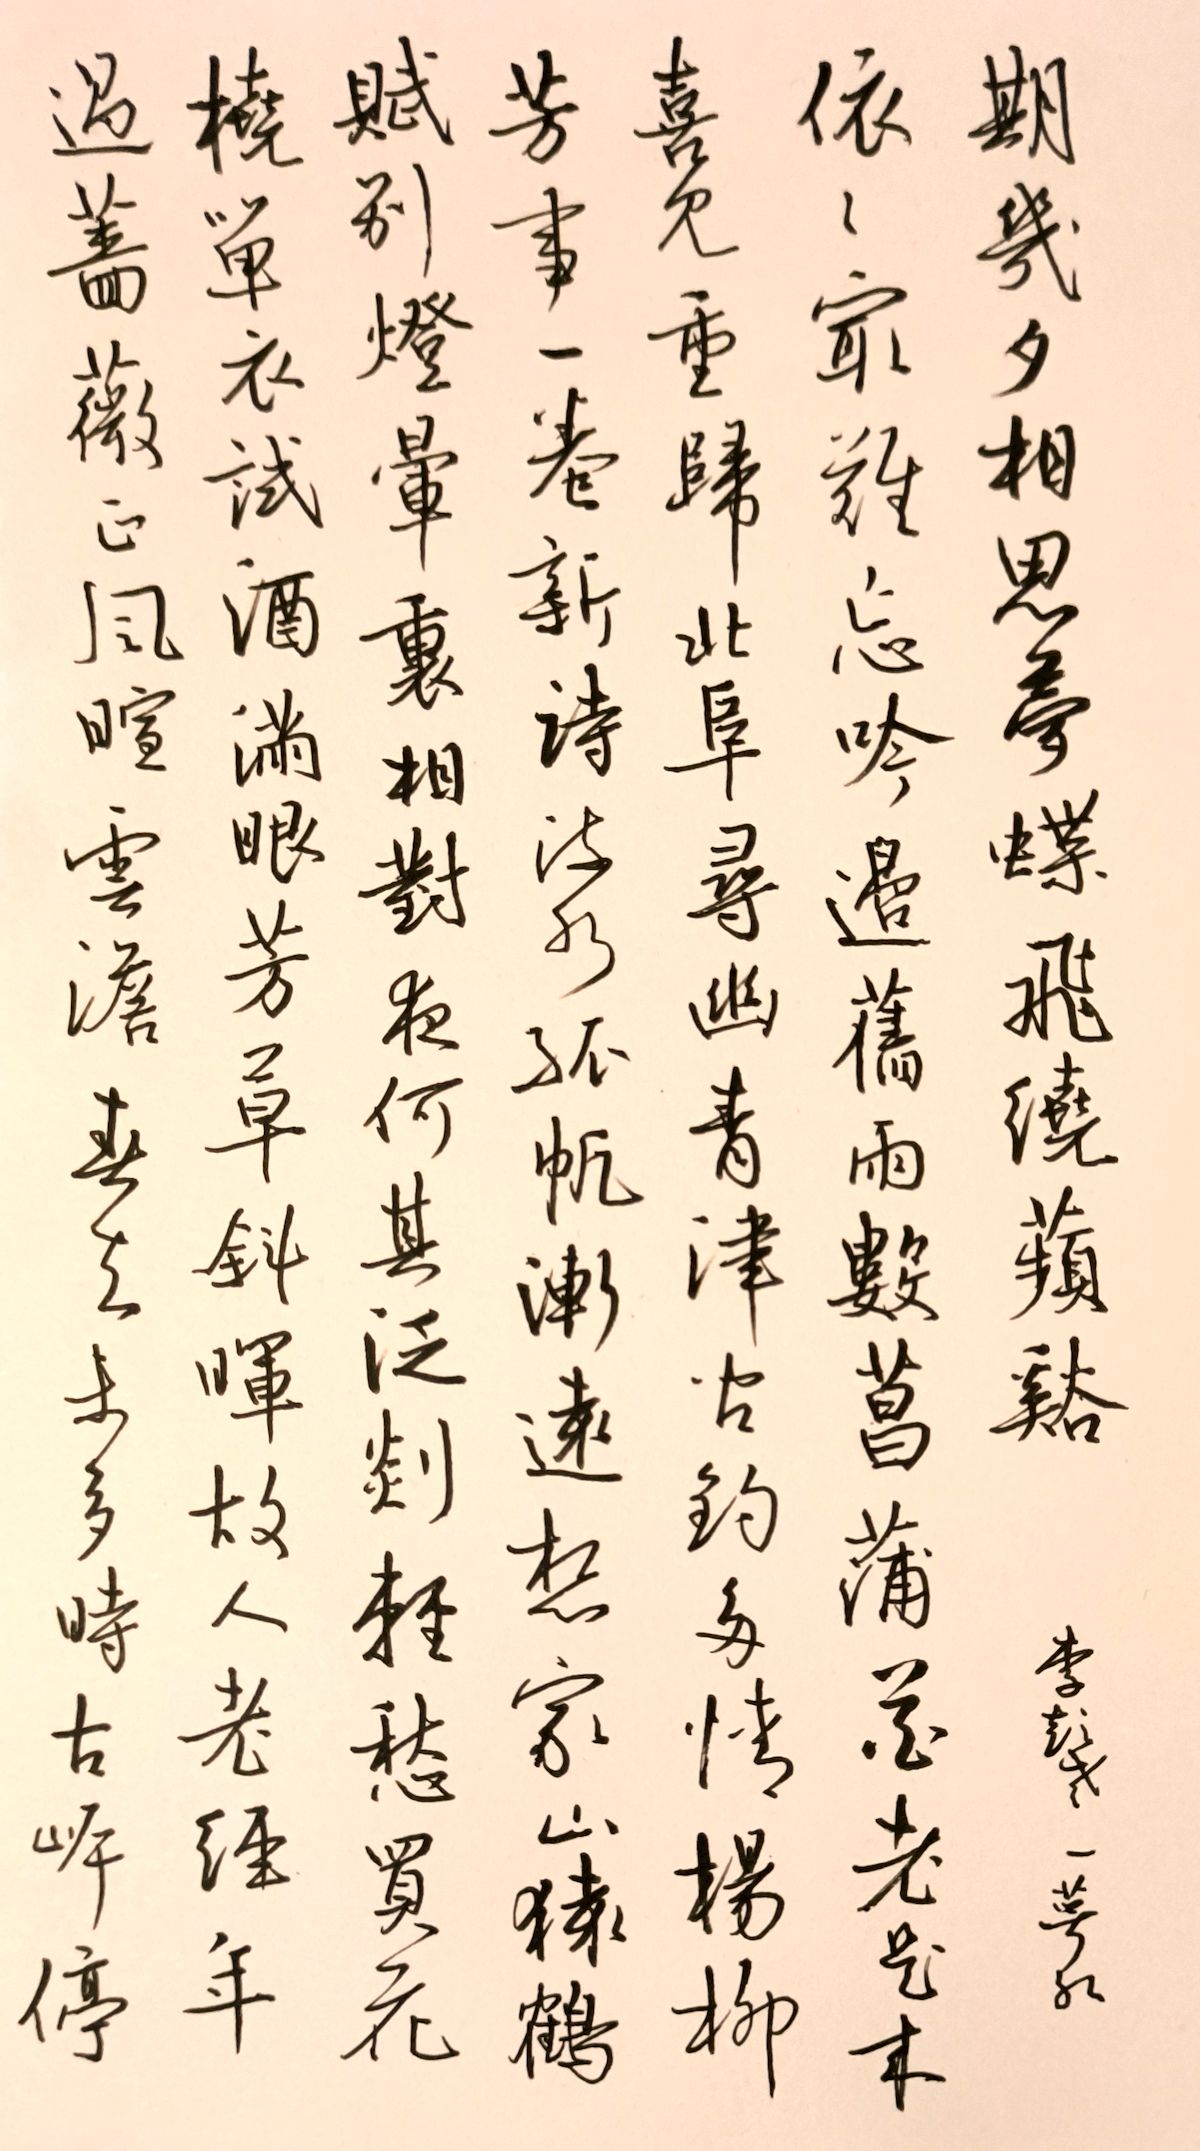 過薔薇正風暄雲澹春去未多時古岸停
橈單衣試酒滿眼芳草斜暉故人老經年
賦別燈暈裏相對夜何其泛剡輕愁買花
芳事一卷新詩流水孤帆漸遠想家山猿鶴
喜見重歸北阜尋幽青津問釣多情楊柳
依〻最難忘吟邊舊雨數菖蒲花老是來
期幾夕相思夢蝶飛繞蘋谿
李彭老 一萼紅